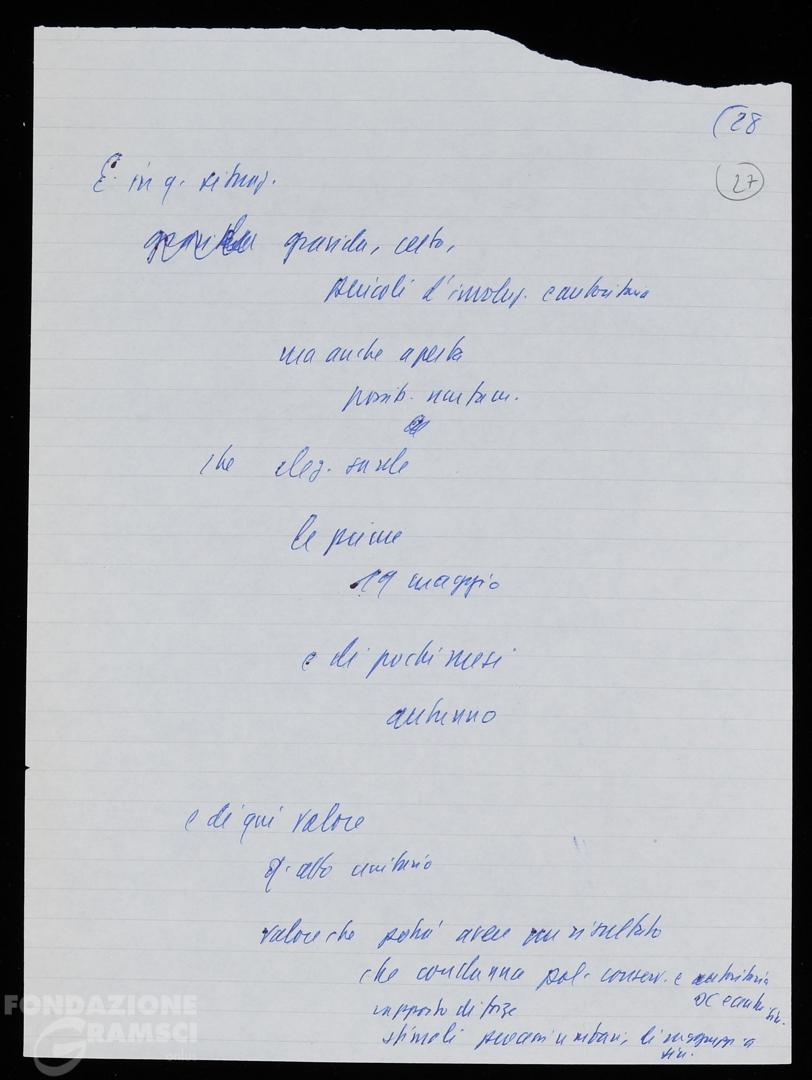 (28
(27)
E in q. situaz.
gravida, certo,
pericoli d'involuz. e autoritaria
ma anche aperta
possib. mutam.
che elez. sarde
le prime
19 maggio
e di pochi mesi
autunno
e di qui valore
q. atto unitario
valore che potrà avere un risultato
che condanna pol. conserv. e autoritaria
DC e centro sin.
rapporto di forze
stimoli processi unitari, di a
sin.
FONDAZIONE
GRAMSCI
onlus